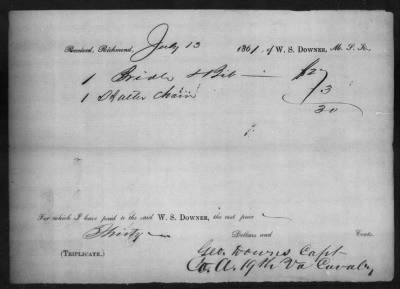 Received, Richmond, July 13 1861, of W. S. DOWNER, M. S. K.,
1 Bridle & Bit — $27
1 Halter Chain 3
30
For which I have paid to the said W. S. DOWNER, the cost price
Thirty Dollars and Cents.
(TRIPLICATE.) Geo. Downs Capt
Co. A. 19th Va Cavalry